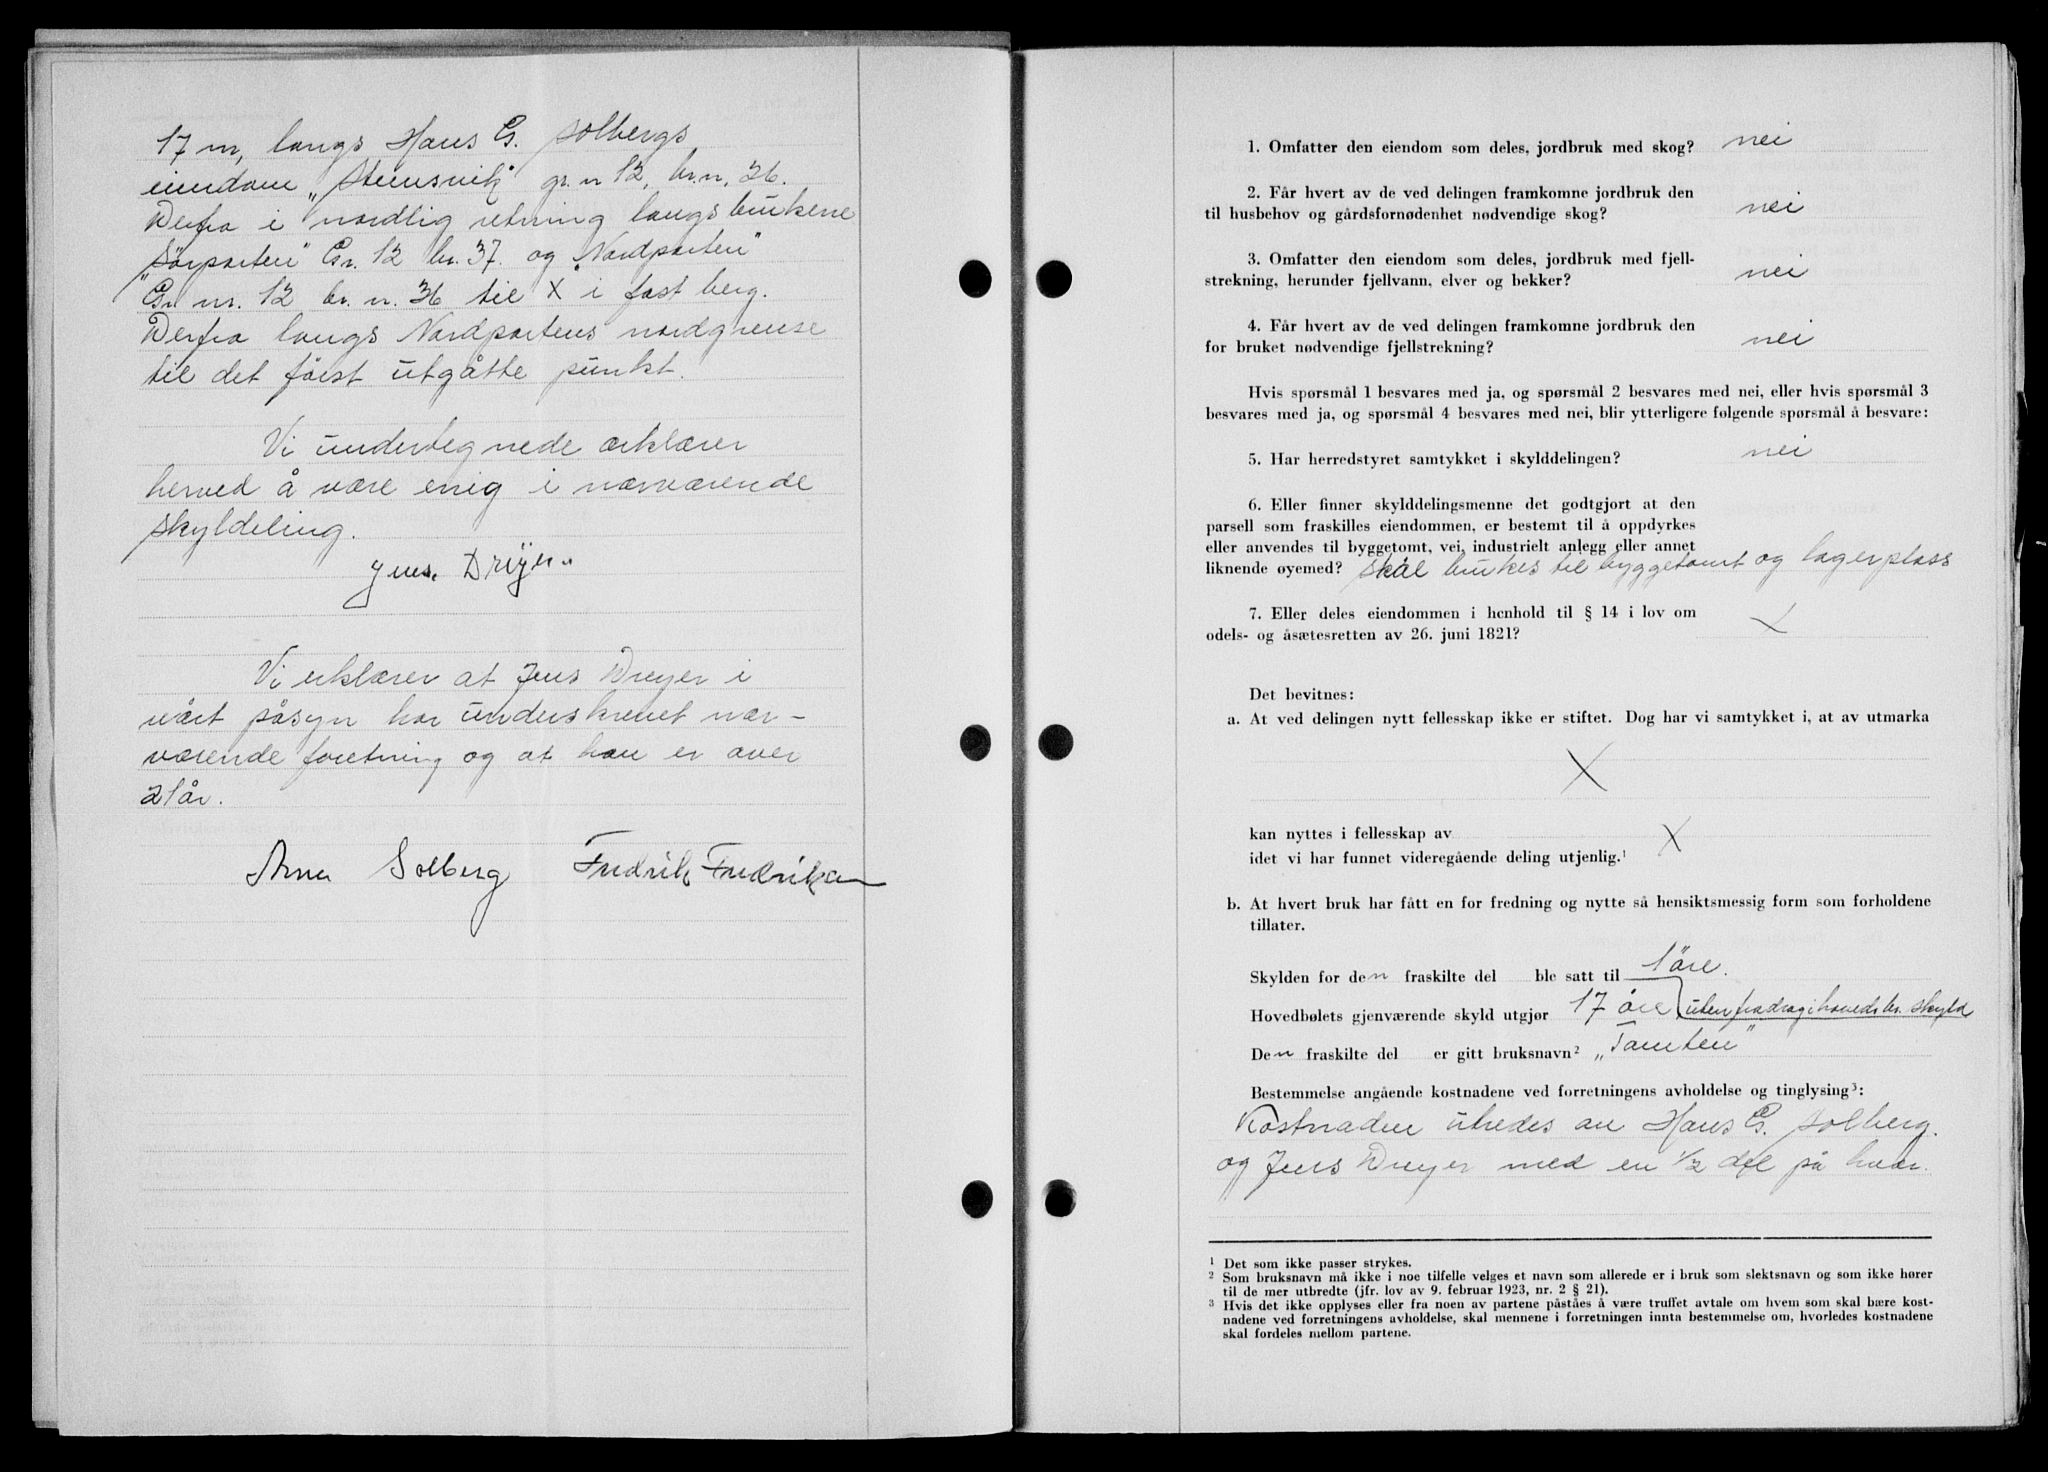 17 m, langs Hans G. Solbergs
eiendom „Steinsvik" gr. n 12, br. n, 36.
Derfra i nordlig retning langs brukene
„Sørparten" Gr. 12 br. 37. og „Nordparten"
Gr nr. 12 br. n. 36 til X i fast berg.
Derfra langs Nordpartens nordgrense
til det først utgåtte punkt.
Vi undertegnede ærklærer
herved å være enig i nærværende
skyldeling.
Jens. Dreyer.
Vi erklærer at Jens Dreyer i
vårt påsyn har underskrevet nær-
værende foretning og at han er over
21 år.
Arne Solberg Fredrik Fredriksen
1. Omfatter den eiendom som deles, jordbruk med skog? nei
2. Får hvert av de ved delingen framkomne jordbruk den
til husbehov og gårdsfornødenhet nødvendige skog? nei
3. Omfatter den eiendom som deles, jordbruk med fjell-
strekning, herunder fjellvann, elver og bekker? nei
4. Får hvert av de ved delingen framkomne jordbruk den
for bruket nødvendige fjellstrekning? nei
Hvis spørsmål 1 besvares med ja, og spørsmål 2 besvares med nei, eller hvis spørsmål 3
besvares med ja, og spørsmål 4 besvares med nei, blir ytterligere følgende spørsmål å besvare:
5. Har herredstyret samtykket i skylddelingen? nei
6. Eller finner skylddelingsmenne det godtgjort at den
parsell som fraskilles eiendommen, er bestemt til å oppdyrkes
eller anvendes til byggetomt, vei, industrielt anlegg eller annet
liknende øyemed? skal brukes til byggetomt og lagerplass
7. Eller deles eiendommen i henhold til § 14 i lov om
odels- og åsætesretten av 26. juni 1821? X
Det bevitnes:
a. At ved delingen nytt fellesskap ikke er stiftet. Dog har vi samtykket i, at av utmarka
X
kan nyttes i fellesskap av X
idet vi har funnet videregående deling utjenlig.¹
b. At hvert bruk har fått en for fredning og nytte så hensiktsmessig form som forholdene
tillater.
Skylden for den fraskilte del ble satt til 1 øre.
Hovedbølets gjenværende skyld utgjør 17 øre uten fradrag i hovedbr. skyld
Den fraskilte del er gitt bruksnavn² „Tomten"
Bestemmelse angående kostnadene ved forretningens avholdelse og tinglysing³:
Kostnaden utredes av Hans G. Solberg.
og Jens Dreyer med en 1/2 del på hver.
¹ Det som ikke passer strykes.
² Som bruksnavn må ikke i noe tilfelle velges et navn som allerede er i bruk som slektsnavn og som ikke hører
til de mer utbredte (jfr. lov av 9. februar 1923, nr. 2 § 21).
³ Hvis det ikke opplyses eller fra noen av partene påståes å være truffet avtale om hvem som skal bære kost-
nadene ved forretningens avholdelse, skal mennene i forretningen innta bestemmelse om, hvorledes kostnadene
skal fordeles mellom partene.